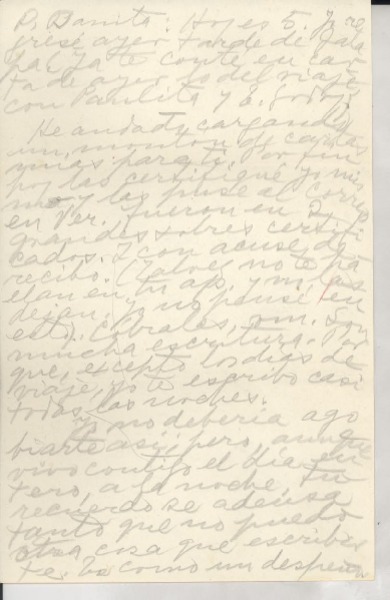 D. Danita: Hoy es 5. Yo re
gresé ayer tarde de Jala
pa. Ya te conté en car
ta de ayer lo del viaje
con Paulita y E. Godoy.
He andado cargando
un montón de cartas
mías para ti. Por fin
hoy las certifiqué yo mis
ma y las puse al correo
en Ver. Fueron en 2
grandes sobres certifi
cados. Y con acuse de
recibo. (Talvez no te ha
llan en tu ap. y me las
dejan. No pensé en
esto). Cóbrales, son
mucha escritura. Por
que, excepto los días de
viaje, yo te escribo casi
todas las noches.
Yo no debería ago
biarte así; pero, aunque
vivo contigo el día en
tero, a la noche, tu
recuerdo se adensa
tanto que no puedo
otra cosa que escribir
te. Es como un despren